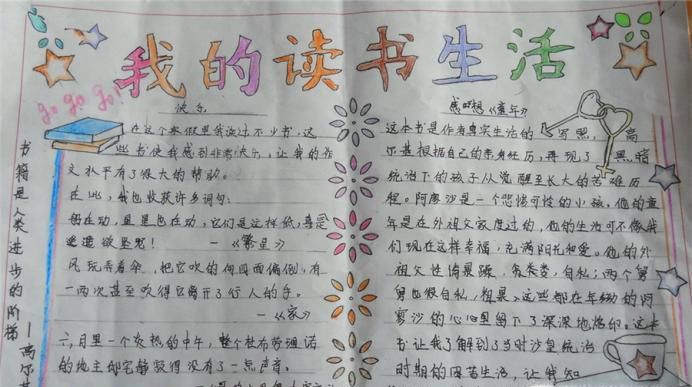 我的读书生活
go go go!
快乐
在这个寒假里我读过不少书,这
些书使我感到非常快乐,让我的作
文水平有了很大的帮助。
在此,我也收获许多词句:
船在动,星星也在动,它们是这样低,真是
摇摇欲坠呢!
—《繁星》
风玩弄着伞,把它吹的向四面偏倒,有
一两次甚至吹得它离开了行人的手。
—《家》
六月里一个炎热的中午,整个杜布劳诺
的地主邸宅静寂得没有了一点声音。
书籍是人类进步的阶梯
—高尔基
感想《童年》
这本书是作者真实生活的写照,高
尔基根据自己的亲身经历,再现了黑暗
统治下的孩子从觉醒至长大的苦难历
程。阿廖沙是一个悲惨可怜的小孩,他的童
年是在外祖父家度过的,他的生活可不像我
们现在这样幸福,充满阳光和爱。他的外
祖父性情暴躁,自私;两个舅
舅也很自私,粗暴。这些都在年幼的阿
廖沙的心里留下了深深地烙印。这本
书让我了解到了当时沙皇统治
时期的困苦生活,让我知